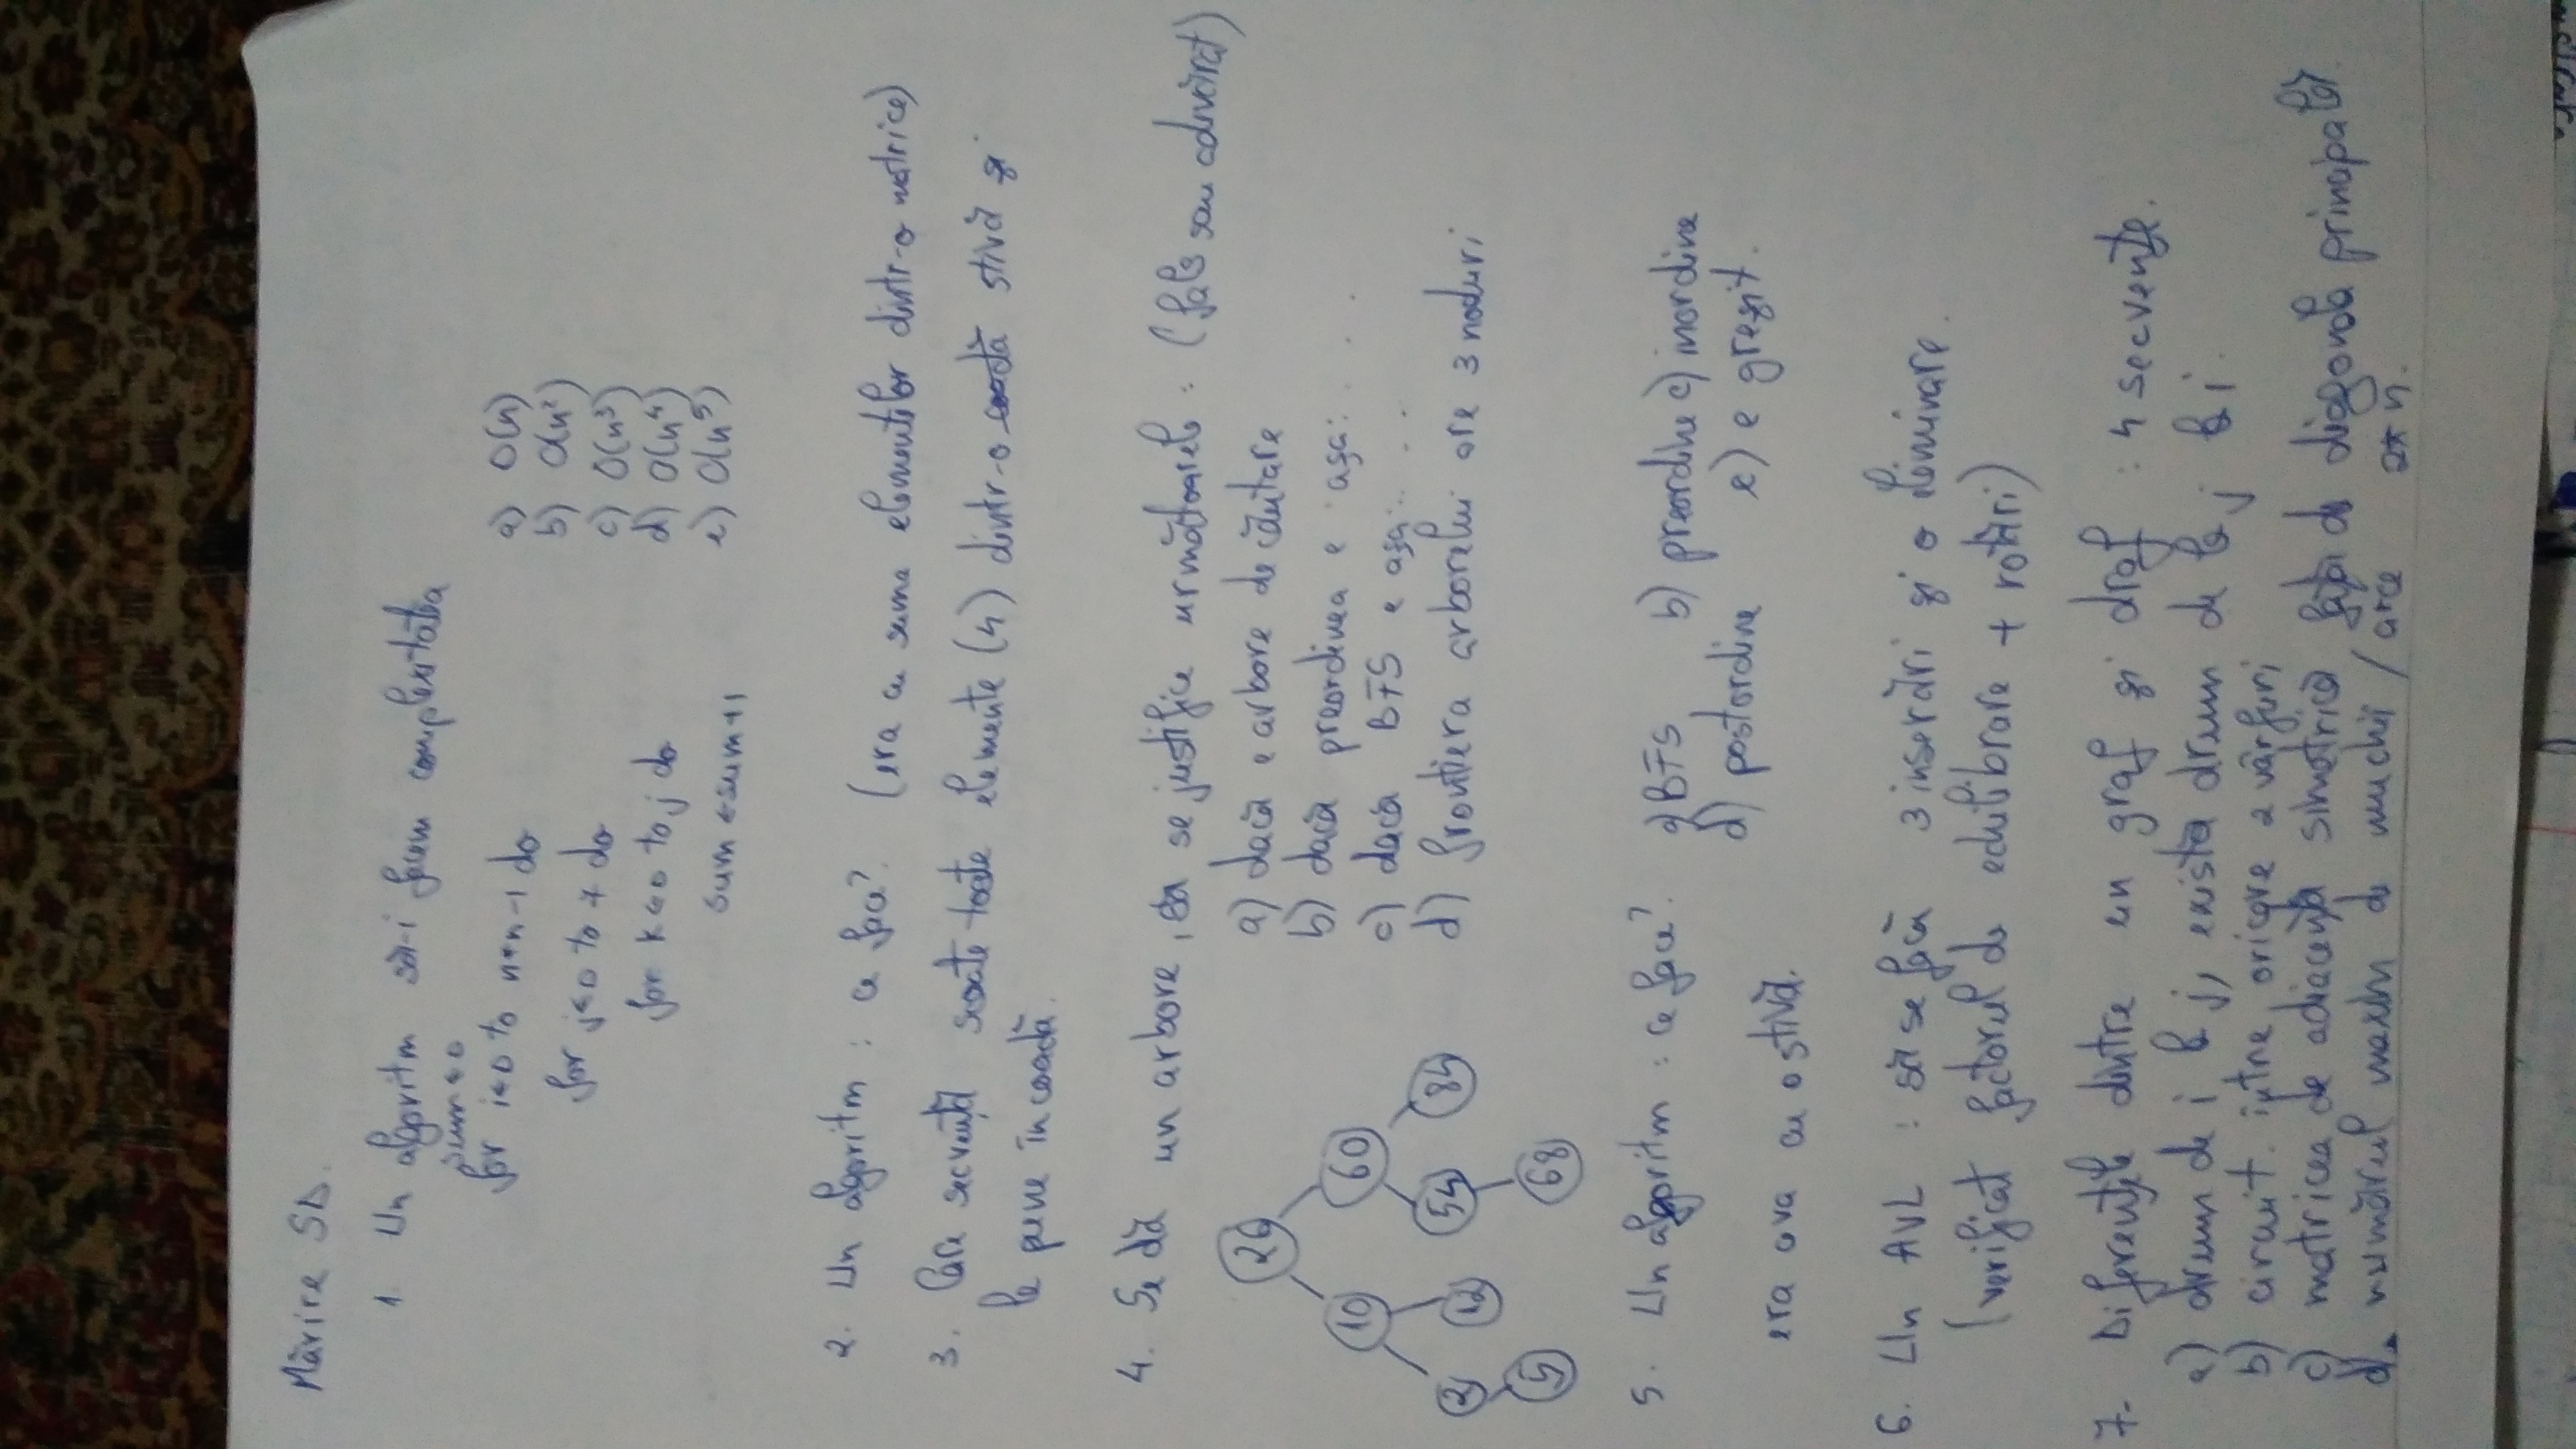 Mărire SD.
1. Un algoritm să-i facem complexitatea
sum ← 0
for i←0 to n*n-1 do
a) O(n)
b) O(n²)
for j←0 to 7 do
c) O(n³)
for k←0 to j do
d) O(n⁴)
sum ← sum+1
e) O(n⁵)
2. Un algoritm : ce face? (era cu suma elementelor dintr-o matrice)
3. Care secvență scoate toate elemente (4) dintr-o coadă stivă și
le pune în coadă.
4. Se dă un arbore, să se justifice următoarele : (fals sau adevărat)
26
a) dacă e arbore de căutare
10 60
b) dacă preordinea e așa: . . .
c) dacă BFS e așa: . . .
2 12 54 84
d) frontiera arborelui are 3 noduri
5 68
5. Un algoritm : ce face? a) BFS b) preordine c) inordine
d) postordine e) e greșit.
era ava cu o stivă.
6. Un AVL : să se facă 3 inserări și o eliminare.
(verificat factorul de echilibrare + rotări)
7. Diferențele dintre un graf și draf : 4 secvențe.
a) drum de i la j, există drum de la j la i.
b) circuit între oricare 2 vârfuri
c) matricea de adiacență simetrică față de diagonala principală.
d. numărul maxim de muchii / arce 2*n.